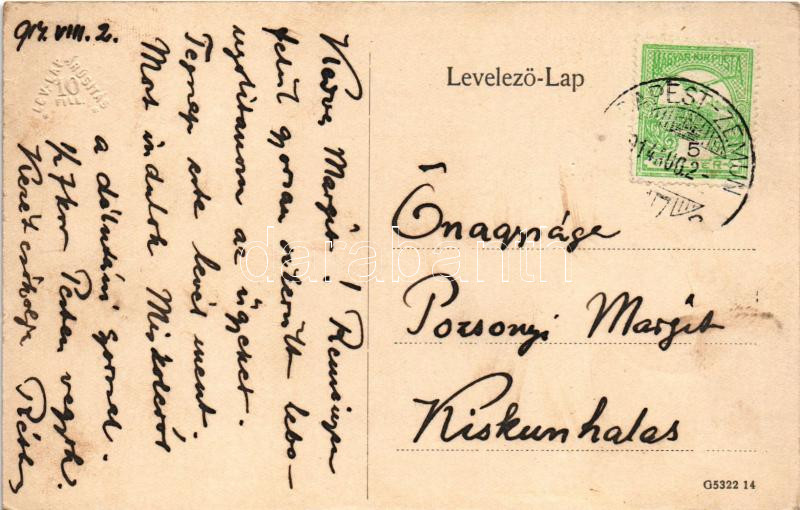 914. VIII. 2.
LEV.-LAP ÁRUSITÁS
10
FILL.
Kedves Margit! Reményen
felül gyorsan sikerült lebo-
nyolitanom az ügyeket.
Tegnap este levél ment.
Most indulok Miskolcról
a délutáni gyorssal.
1/2 7 kor Pesten vagyok.
Kezét csókolja
Levelező-Lap
MAGYAR KIR. POSTA
BUDAPEST-ZIMONY
914 AUG. 2
5
Őnagysága
Pozsonyi Margit
Kiskunhalas
G5322 14
darabanth